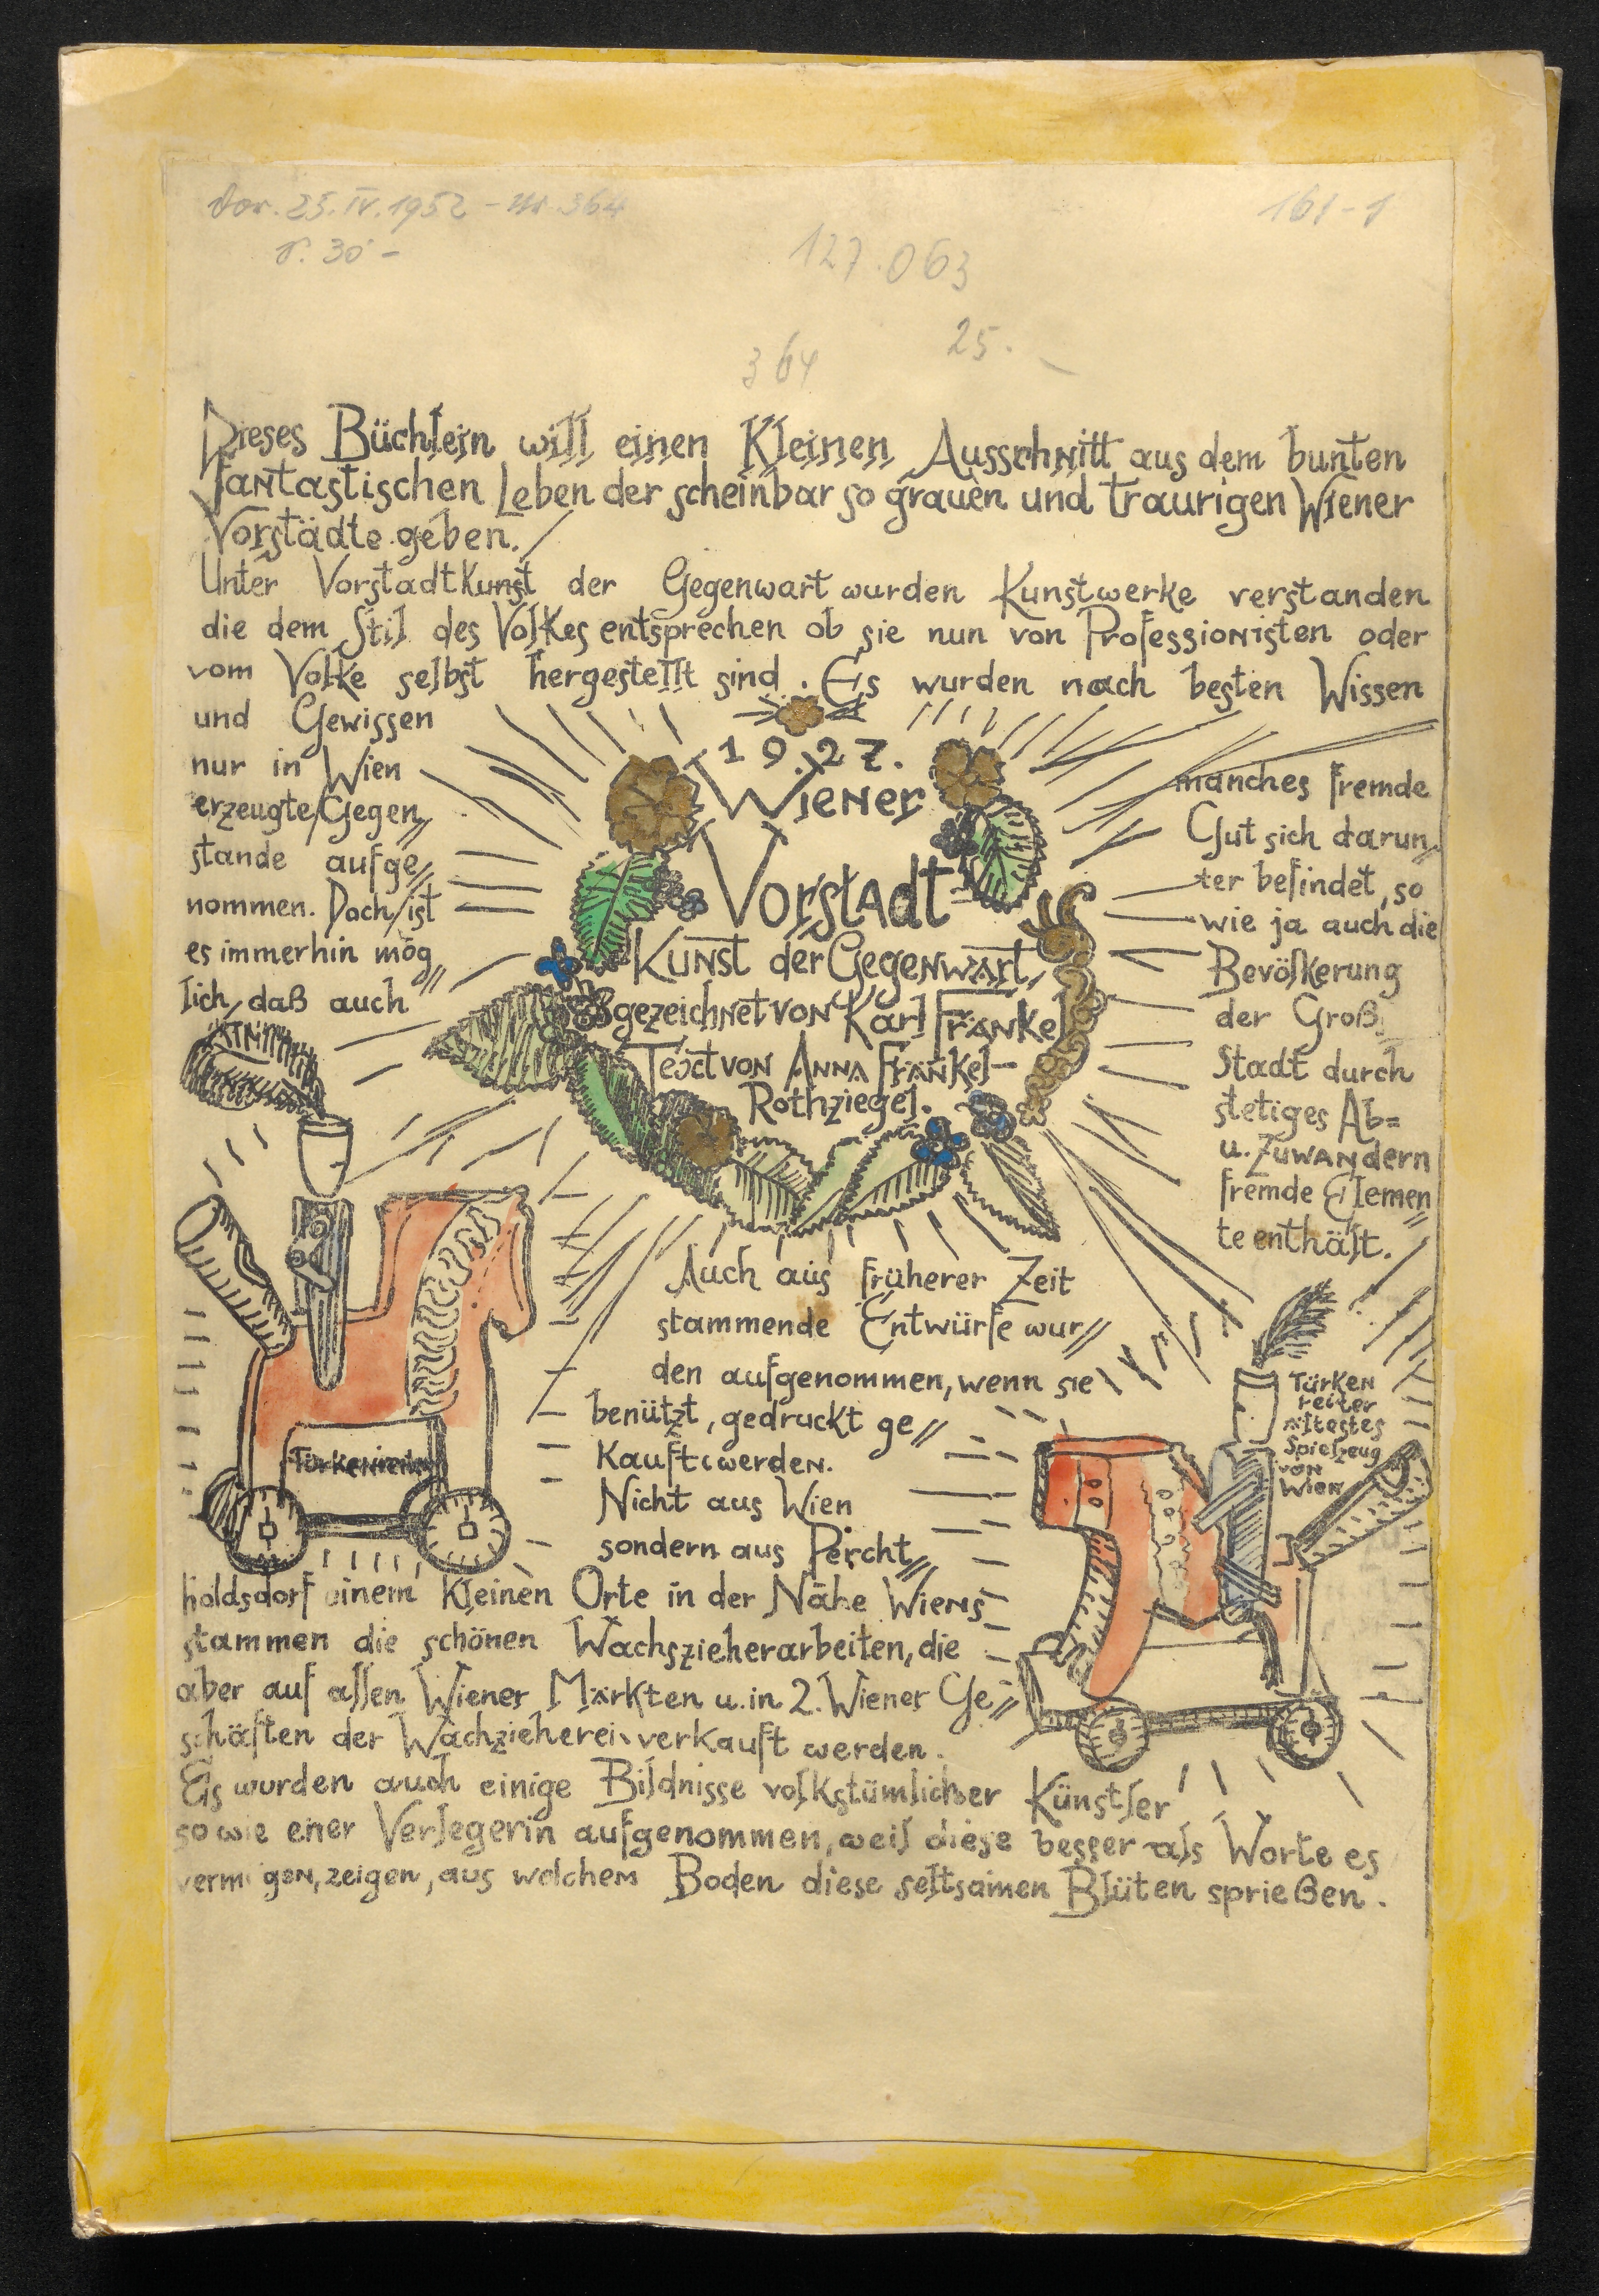 Vor. 25.IV.1952 - Nr. 364
161-1
S. 30 -
127.063
25.-
364
Dieses Büchlein will einen Kleinen Ausschnitt aus dem bunten
fantastischen Leben der scheinbar so grauen und traurigen Wiener
Vorstädte geben.
Unter Vorstadtkunst der Gegenwart wurden Kunstwerke verstanden
die dem Stil des Volkes entsprechen ob sie nun von Professionisten oder
vom Volke selbst hergestellt sind. Es wurden nach besten Wissen
und Gewissen
nur in Wien
erzeugte Gegen//
stande aufge//
nommen. Doch ist
es immerhin mög//
lich, daß auch
1927.
Wiener
Vorstadt
Kunst der Gegenwart,
gezeichnet von Karl Fränkel
Text von Anna Fränkel-
Rothziegel.
manches fremde
Gut sich darun//
ter befindet, so
wie ja auch die
Bevölkerung
der Groß
Stadt durch
stetiges Ab=
u. Zuwandern
fremde Elemen//
te enthält.
Auch aus früherer Zeit
stammende Entwürfe wur//
den aufgenommen, wenn sie
benützt, gedruckt ge//
Kauft werden.
Nicht aus Wien
sondern aus Percht//
holdsdorf einem Kleinen Orte in der Nähe Wiens
stammen die schönen Wachszieherarbeiten, die
aber auf allen Wiener Märkten u. in 2. Wiener Ge//
schäften der Wachzieherei verkauft werden.
Es wurden auch einige Bildnisse volkstümlicher Künstler
sowie einer Verlegerin aufgenommen, weil diese besser als Worte es
vermögen, zeigen, aus welchem Boden diese seltsamen Blüten sprießen.
Türkenreiter
Türken
reiter
ältestes
Spielzeug
von
Wien